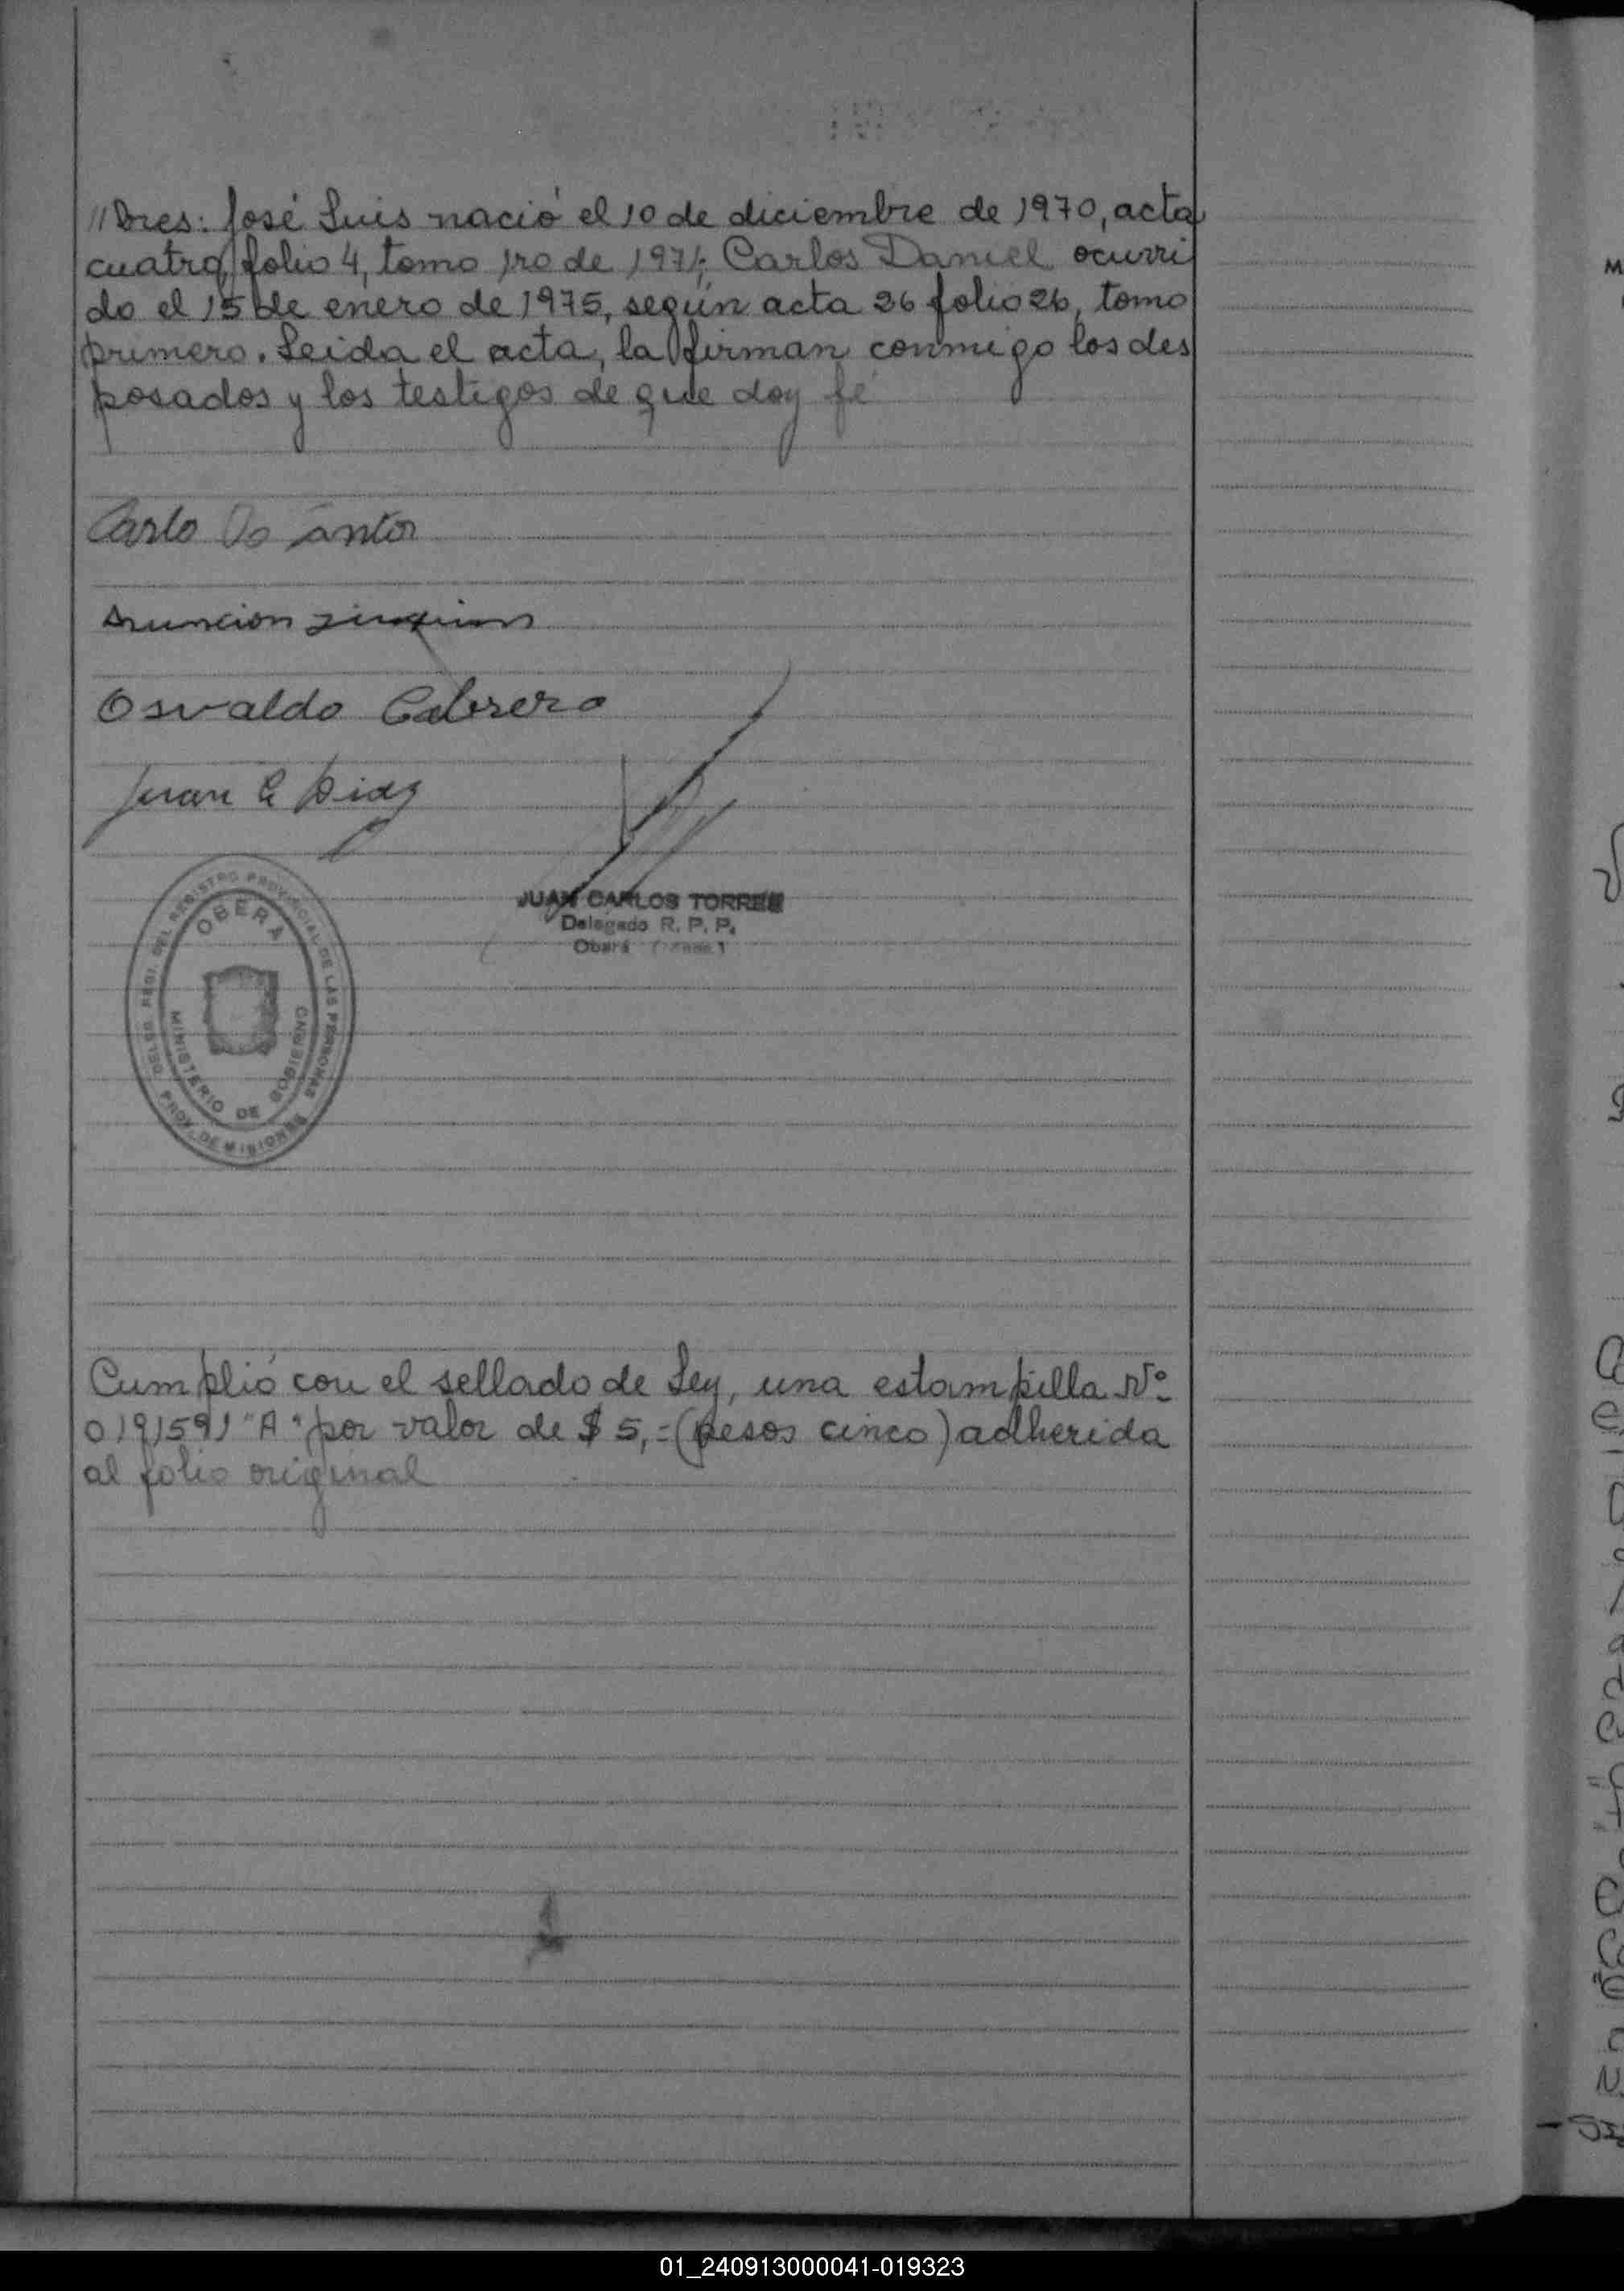 //bres: José Luis nació el 10 de diciembre de 1970, acta
cuatro, folio 4, tomo 1ro de 1971; Carlos Daniel ocurri
do el 15 de enero de 1975, según acta 26 folio 26, tomo
primero. Leida el acta, la firman conmigo los des
posados y los testigos de que doy fé
Carlo Do Santo
Asuncion
Osvaldo Cabrera
Juan C Diaz
JUAN CARLOS TORRES
Delegado R. P. P.
Oberá
DELEG. REGI. DEL REGISTRO PROVINCIAL DE LAS PERSONAS
OBERA
MINISTERIO DE GOBIERNO
PROV. DE MISIONES
Cumplió con el sellado de Ley, una estampilla Nº
0191591 "A" por valor de $ 5,= (pesos cinco) adherida
al folio original
01_240913000041-019323